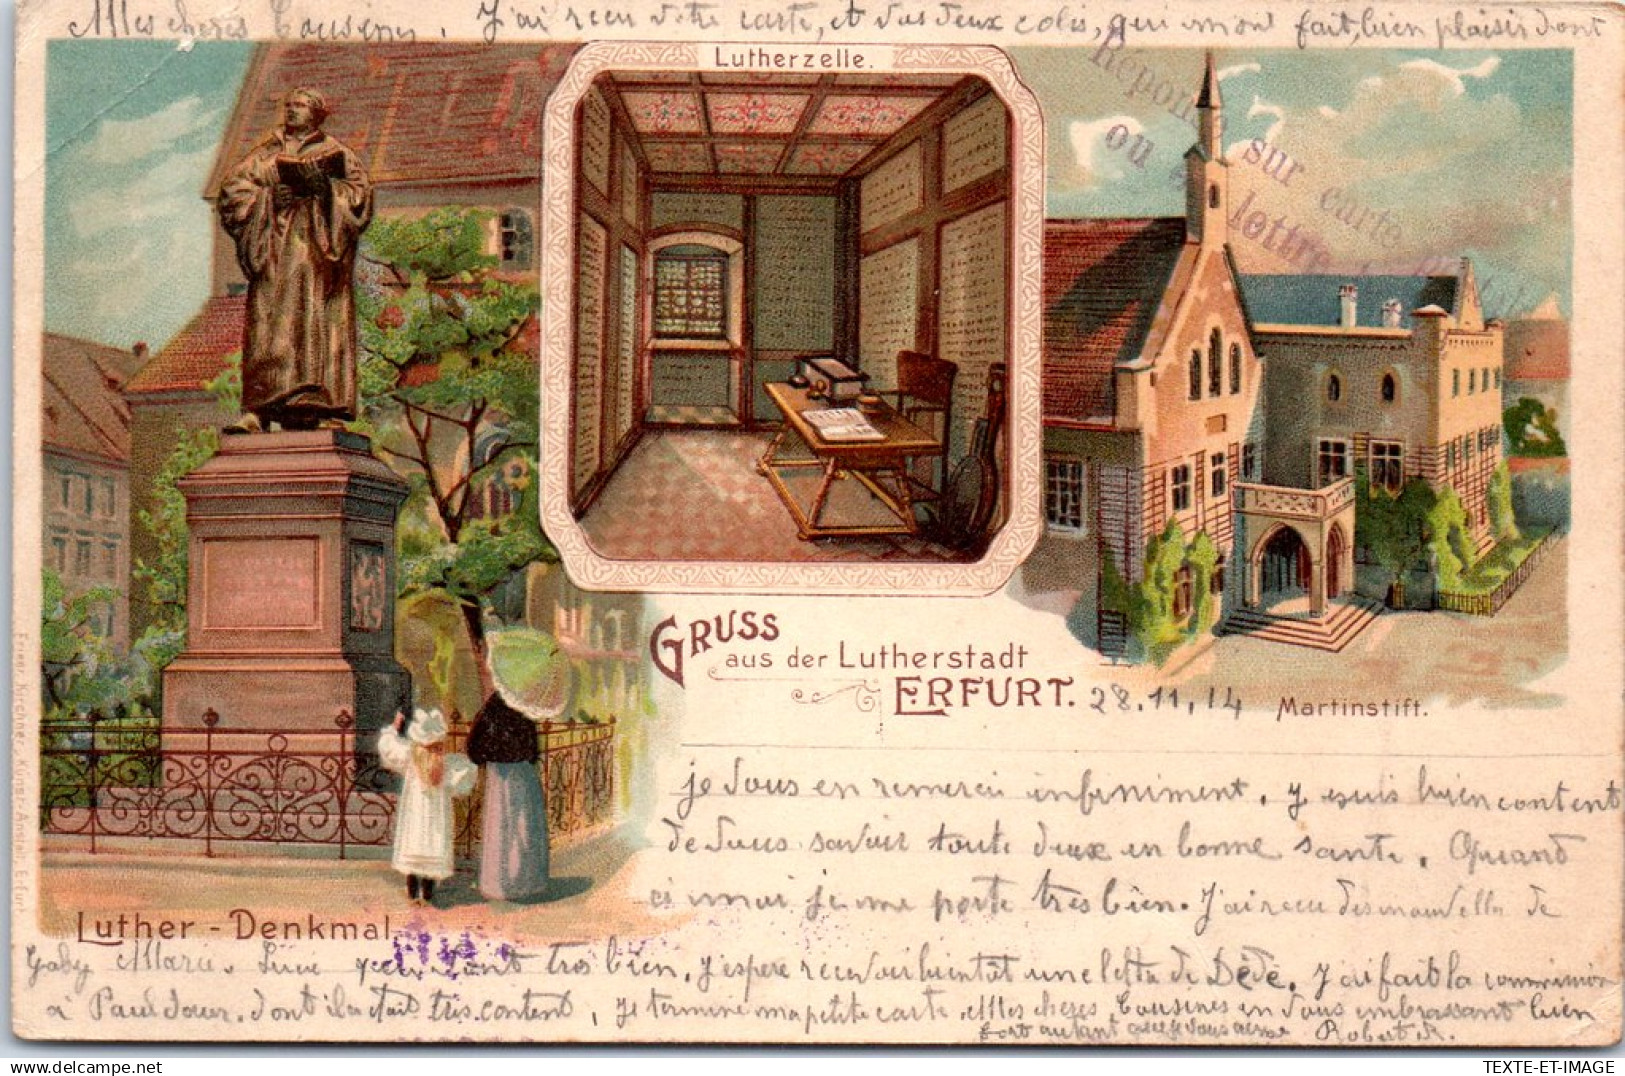 Mes cheres Cousines. J'ai recu votre carte, et vos deux colis, qui m'ont fait, bien plaisir dont
Lutherzelle.
Réponse sur carte
ou lettre
GRUSS
aus der Lutherstadt
ERFURT. 28.11.14
Martinstift.
je vous en remercie infiniment. Je suis bien content
de vous savoir toute deux en bonne sante. Quand
a moi je me porte tres bien. J'ai recu des nouvelles de
Luther-Denkmal.
Gaby Marie. Lucie vont tres bien. J'espere recevoir bientot une lettre de Dédé. J'ai fait la commission
à Paul dont il etait tres content, Je termine ma petite carte Mes cheres Cousines en vous embrassant bien
fort autant que je vous aime Robert R.
Frieur. Kirchner, Kunst-Anstalt, Erfurt
TEXTE-ET-IMAGE